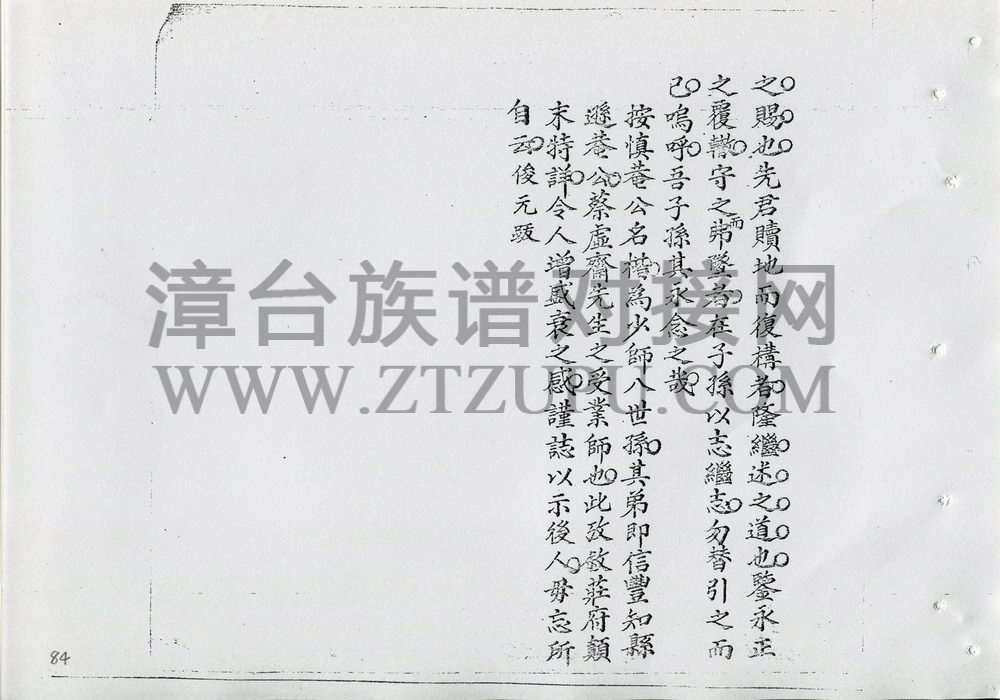 之賜也先君贖地而復構者隆繼述之道也鑒永正
之覆轍守之而弗墜者在子孫以志繼志勿替引之而
已嗚呼吾子孫其永念之哉
按慎菴公名楷為少師八世孫其弟即信豐知縣
遜菴公蔡虛齋先生之受業師也此攷敘莊府顛
末特詳令人增盛衰之感謹誌以示後人毋忘所
自云俊元跋
漳台族谱对接网
WWW.ZTZUPU.COM
84